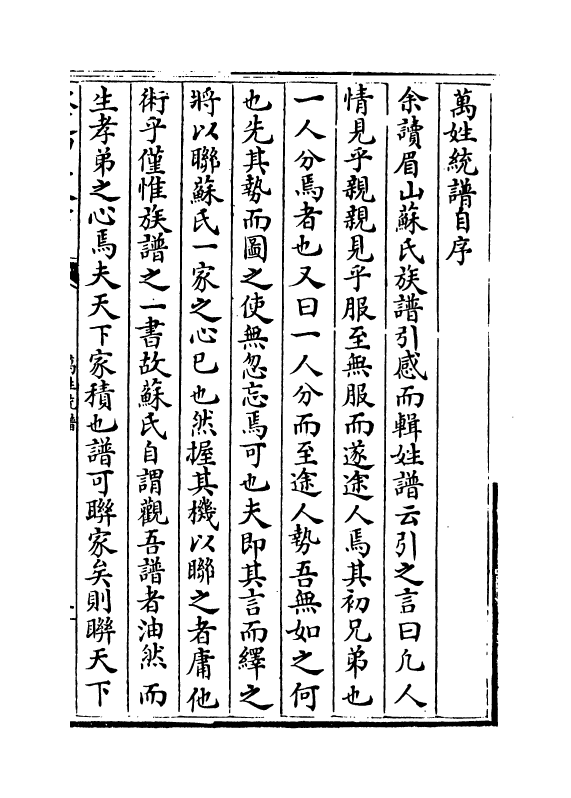 萬姓統譜自序
余讀眉山蘇氏族譜引感而輯姓譜云引之言曰凡人
情見乎親親見乎服至無服而遂途人焉其初兄弟也
一人分焉者也又曰一人分而至途人勢吾無如之何
也先其勢而圖之使無忽忘焉可也夫即其言而繹之
將以聯蘇氏一家之心已也然握其機以聯之者庸他
術乎僅惟族譜之一書故蘇氏自謂觀吾譜者油然而
生孝弟之心焉夫天下家積也譜可聯家矣則聯天下
萬姓統譜
一